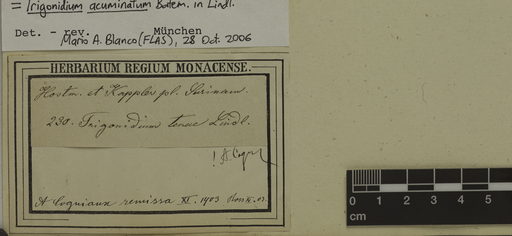 = Trigonidium acuminatum Batem. in Lindl.
Det. - rev. München
Mario A. Blanco (FLAS), 28 Oct. 2006
HERBARIUM REGIUM MONACENSE.
Hostm. et Kappler pl. Surinam.
230. Trigonidium tenue Lindl.
! A. Cogn
A Cogniaux remissa XI. 1903
0 1 2 3 4 5
cm